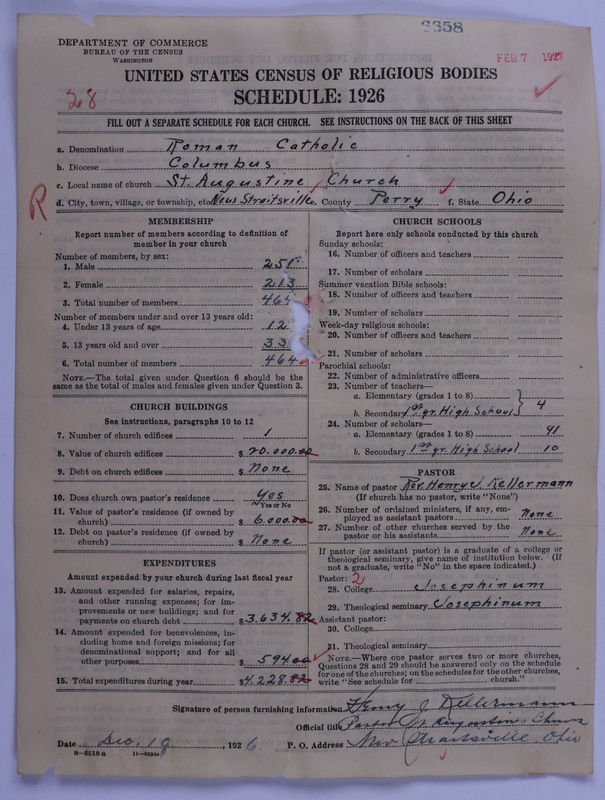 6658
DEPARTMENT OF COMMERCE
BUREAU OF THE CENSUS
WASHINGTON
FEB 7 1927
UNITED STATES CENSUS OF RELIGIOUS BODIES
SCHEDULE: 1926
28
FILL OUT A SEPARATE SCHEDULE FOR EACH CHURCH. SEE INSTRUCTIONS ON THE BACK OF THIS SHEET
a. Denomination Roman Catholic
b. Diocese Columbus
c. Local name of church St. Augustine Church
d. City, town, village, or township, etc. New Straitsville e. County Perry f. State Ohio
R
MEMBERSHIP
Report number of members according to definition of member in your church
Number of members, by sex:
1. Male 251
2. Female 213
3. Total number of members 464
Number of members under and over 13 years old:
4. Under 13 years of age 12
5. 13 years old and over 33
6. Total number of members 464
NOTE.—The total given under Question 6 should be the same as the total of males and females given under Question 3.
CHURCH BUILDINGS
See instructions, paragraphs 10 to 12
7. Number of church edifices 1
8. Value of church edifices $ 20.000.00
9. Debt on church edifices $ None
10. Does church own pastor's residence Yes
Yes or No
11. Value of pastor's residence (if owned by church) $ 6.000.00
12. Debt on pastor's residence (if owned by church) $ None
EXPENDITURES
Amount expended by your church during last fiscal year
13. Amount expended for salaries, repairs, and other running expenses; for improvements or new buildings; and for payments on church debt $ 3.634.82
14. Amount expended for benevolences, including home and foreign missions; for denominational support; and for all other purposes $ 594.00
15. Total expenditures during year $ 4.228.82
CHURCH SCHOOLS
Report here only schools conducted by this church
Sunday schools:
16. Number of officers and teachers
17. Number of scholars
Summer vacation Bible schools:
18. Number of officers and teachers
19. Number of scholars
Week-day religious schools:
20. Number of officers and teachers
21. Number of scholars
Parochial schools:
22. Number of administrative officers
23. Number of teachers—
a. Elementary (grades 1 to 8)
b. Secondary 1st yr. High School 4
24. Number of scholars—
a. Elementary (grades 1 to 8) 91
b. Secondary 1st yr. High School 10
PASTOR
25. Name of pastor Rev. Henry J. Kellermann
(If church has no pastor, write "None")
26. Number of ordained ministers, if any, employed as assistant pastors None
27. Number of other churches served by the pastor or his assistants None
If pastor (or assistant pastor) is a graduate of a college or theological seminary, give name of institution below. (If not a graduate, write "No" in the space indicated.)
Pastor: 2
28. College Josephinum
29. Theological seminary Josephinum
Assistant pastor:
30. College
31. Theological seminary
NOTE.—Where one pastor serves two or more churches, Questions 28 and 29 should be answered only on the schedule for one of the churches; on the schedules for the other churches, write "See schedule for church."
Signature of person furnishing information Henry J. Kellermann
Official title Pastor St Augustines Church
Date Dec. 19, 1926 P. O. Address New Straitsville Ohio
8—5518 a